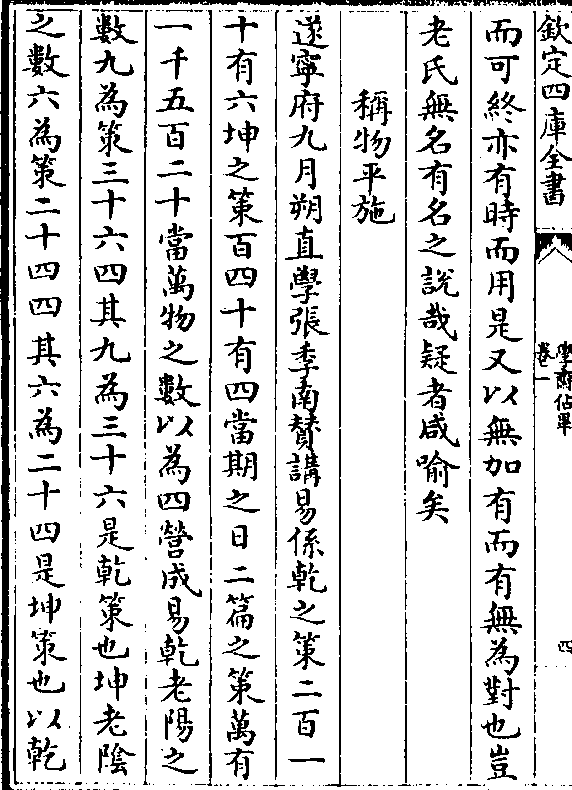 欽定四庫全書
學齋佔畢
卷一
四
而可終亦有時而用是又以無加有而有無為對也豈
老氏無名有名之說哉疑者咸喻矣
稱物平施
遂寧府九月朔直學張季南贊講易係乾之策二百一
十有六坤之策百四十有四當期之日二篇之策萬有
一千五百二十當萬物之數以為四營成易乾老陽之
數九為策三十六四其九為三十六是乾策也坤老陰
之數六為策二十四四其六為二十四是坤策也以乾